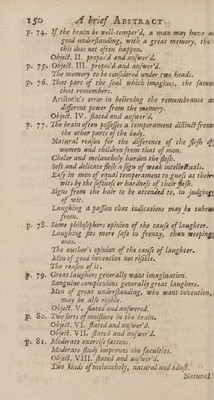 150 A brief ABSTRACT
p. 74. If the brain be well-temper'd, a man may have an
good understanding, with a great memory, tho'
this does not often happen.
Object. II. propos'd and answer'd.
p. 75. Object. III. propos'd and answer'd.
The memory to be considered under two heads.
p. 76. That part of the soul which imagines, the same
that remembers.
Aristotle's error in believing the remembrance a
different power from the memory.
Object. IV. stated and answer'd.
p. 77. The brain often possesses a temperament distinct from
the other parts of the body.
Natural reason for the difference of the flesh of
women and children from that of men.
Choler and melancholy harden the flesh.
Soft and delicate flesh a sign of weak intellectuals.
Easy in men of equal temperament to guess at their
wits by the softness or hardness of their flesh.
Signs from the hair to be attended to, in judging
of wit.
Laughing a passion that indications may be taken
from.
p. 78. Some philosophers opinion of the cause of laughter.
Laughing fits more safe in frenzy, than weeping
ones.
The author's opinion of the cause of laughter.
Men of good invention not risible.
The reason of it.
p. 79. Great laughers generally want imagination.
Sanguine complexions generally great laughers.
Men of great understanding, who want invention,
may be also risible.
Object. V. stated and answered.
p. 80. Two sorts of moisture in the brain.
Object. VI. stated and answer'd.
Object. VII. stated and answer'd.
p. 81. Moderate exercise fattens.
Moderate study improves the faculties.
Object. VIII. stated and answer'd.
Two kinds of melancholy, natural and adust.
Natural